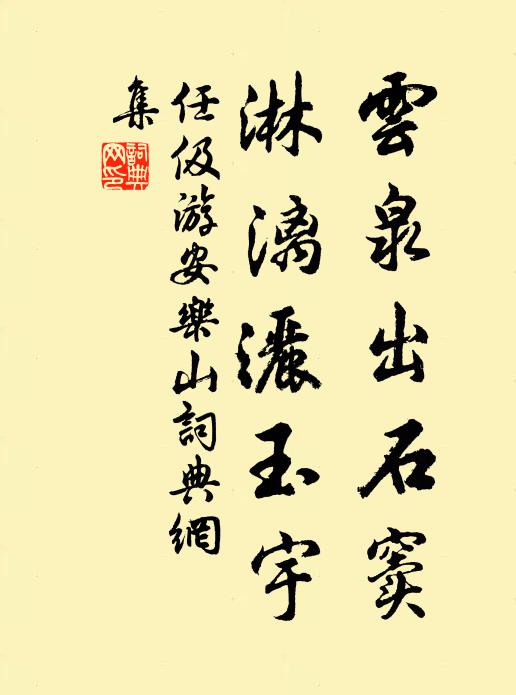 雲泉出石竇
淋漓灑玉宇
任伋游安樂山詞典網
集
詞典網印